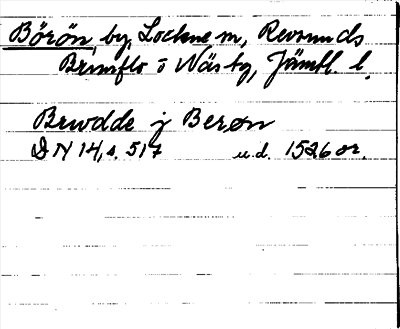 Börön by, Lockne sn, Revsunds
Brunflo o Näs tg, Jämtl. l.
Brudde j Berøn
DN 14, s. 517 u.d. 1526 or.